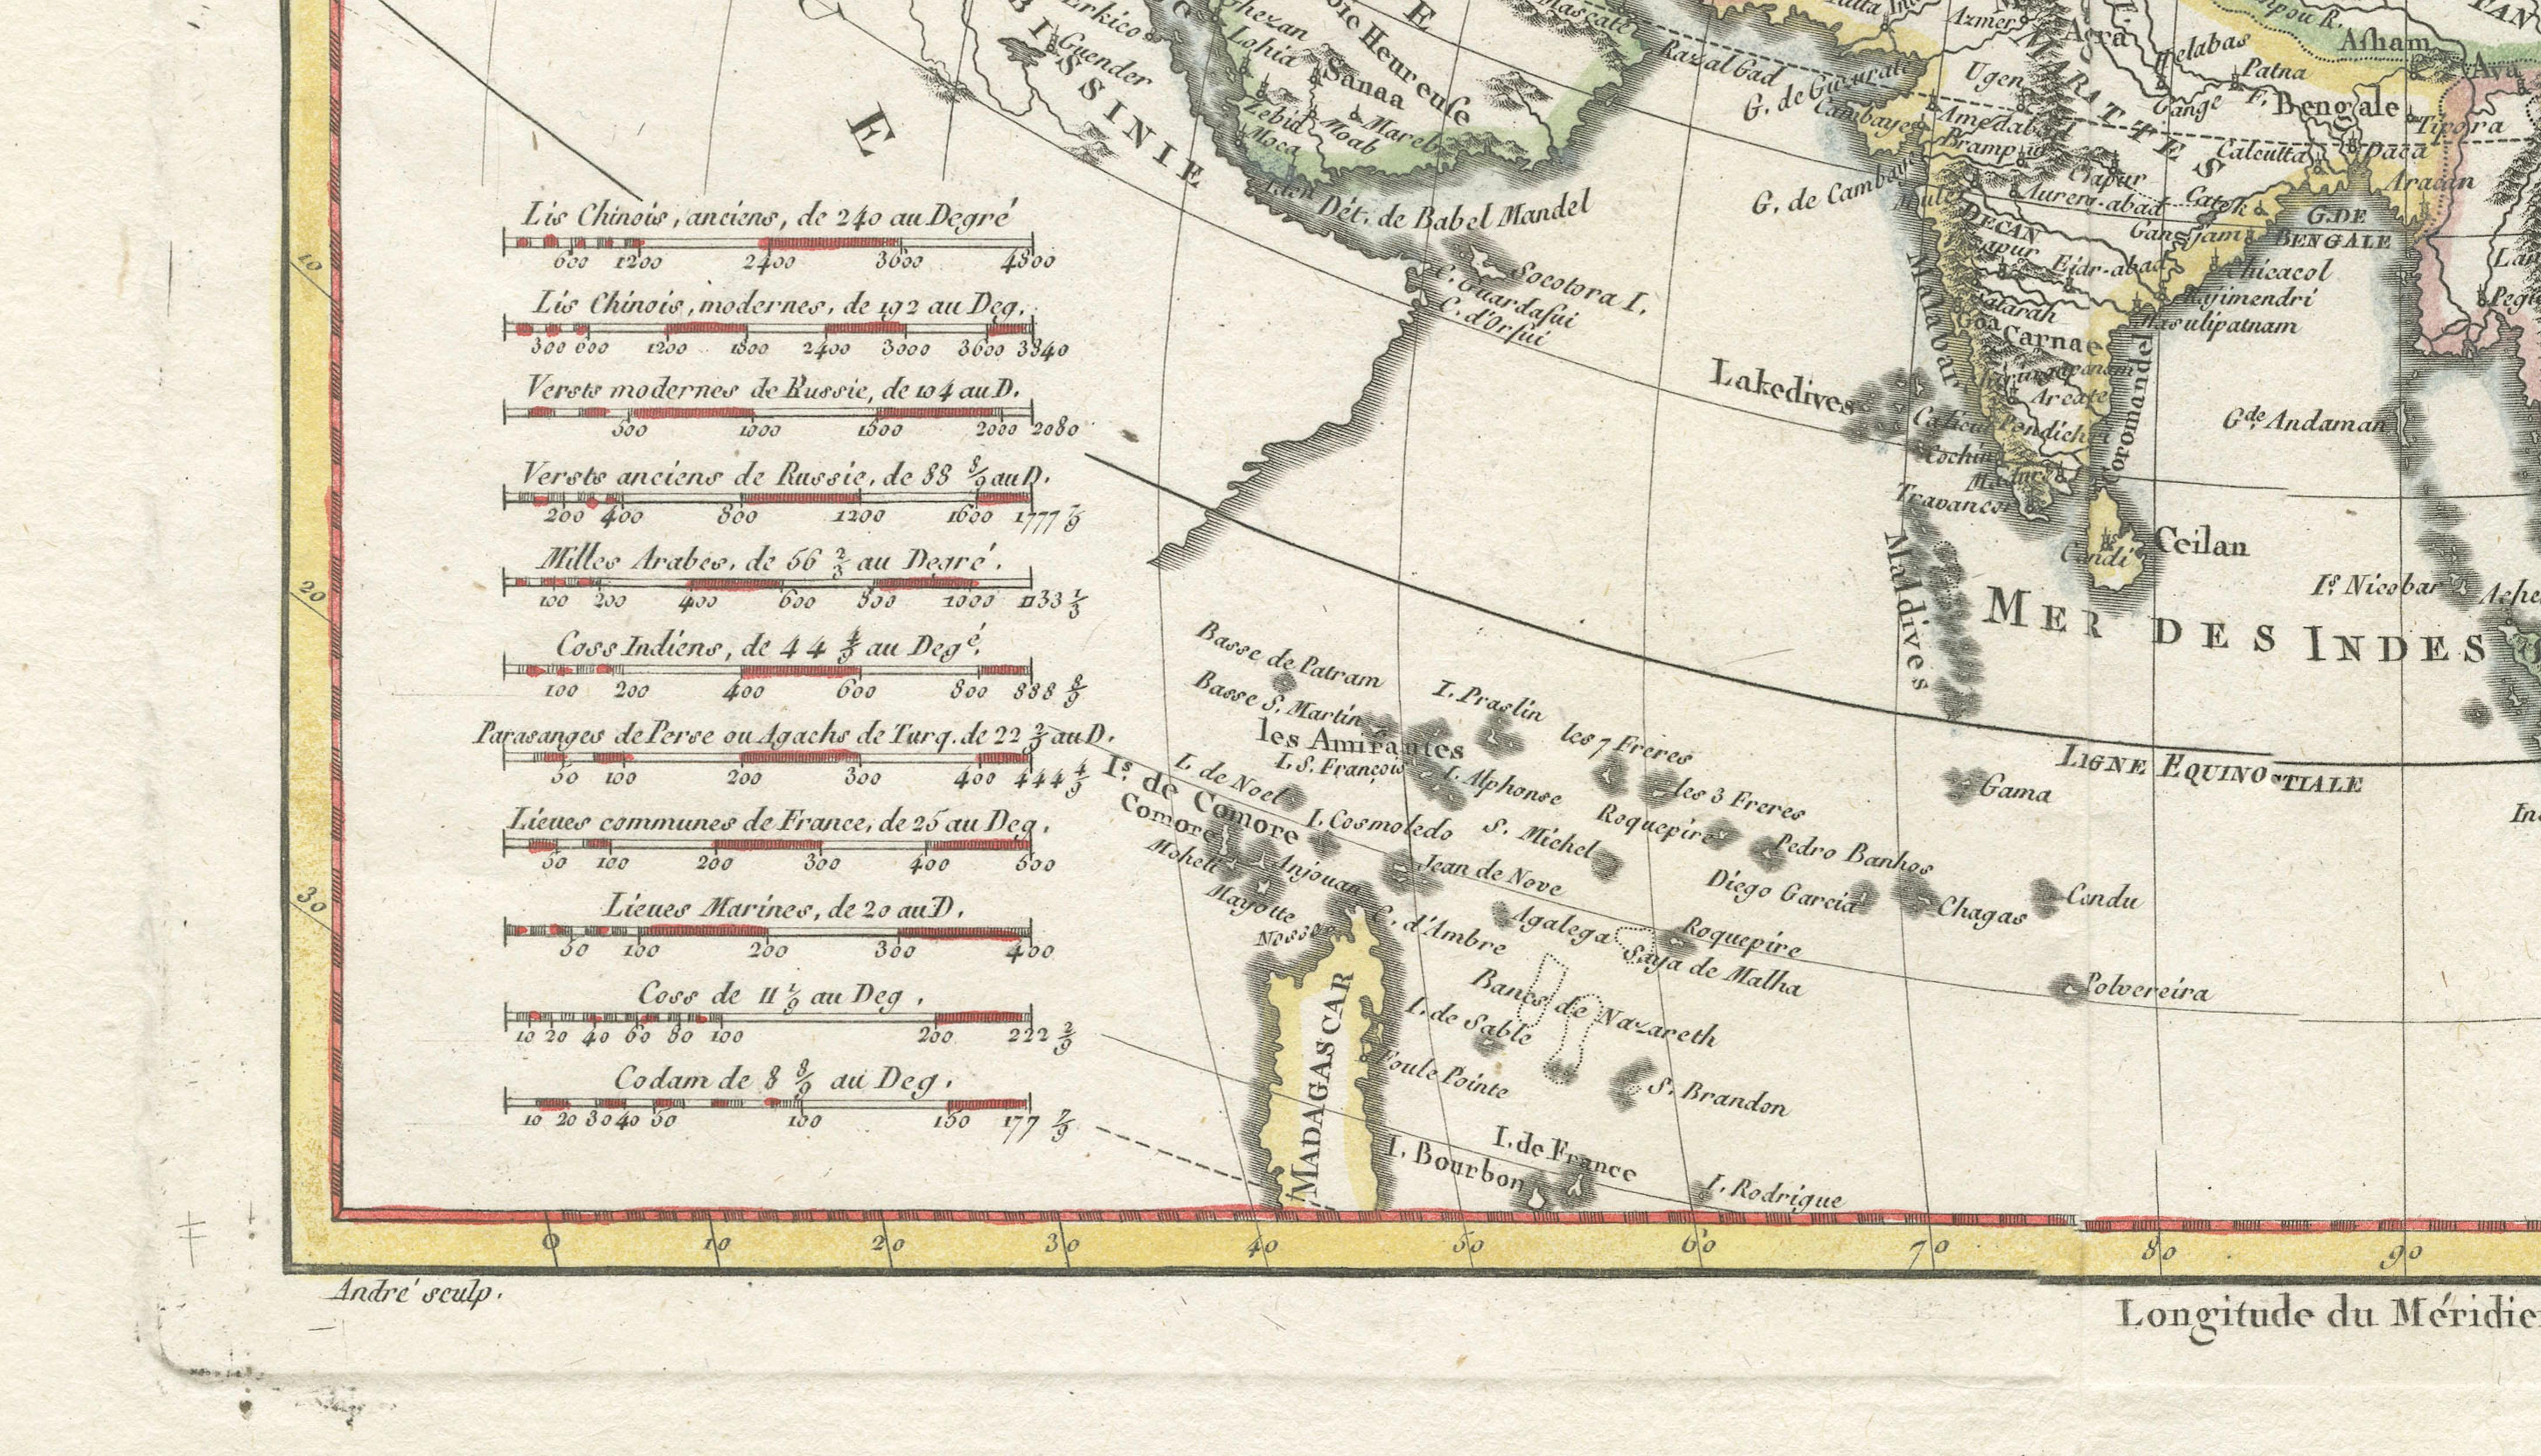 Lis Chinois, anciens, de 240 au Degré
600 1200 2400 3600 4800
Lis Chinois, modernes, de 192 au Deg.
300 600 1200 1800 2400 3000 3600 3840
Versts modernes de Russie, de 104 au D.
500 1000 1500 2000 2080
Versts anciens de Russie, de 88 8/9 au D.
200 400 800 1200 1600 1777 7/9
Milles Arabes, de 56 2/3 au Degré.
100 200 400 600 800 1000 1133 1/3
Coss Indiens, de 44 4/9 au Degé.
100 200 400 600 800 888 8/9
Parasanges de Perse ou Agachs de Turq. de 22 2/9 au D.
50 100 200 300 400 444 4/9
Lieues communes de France, de 25 au Deg.
50 100 200 300 400 500
Lieues Marines, de 20 au D.
50 100 200 300 400
Coss de 11 1/9 au Deg.
10 20 40 60 80 100 200 222 2/9
Codam de 8 8/9 au Deg.
10 20 30 40 50 100 150 177 7/9
10
20
30
E
BISSINIE
Erkico
Guender
Ghezan
Lohia
Sanaa
Heureuse
E
Zebid
Moab
Mareb
Moca
Aden
Mascate
Razalgad
Dét. de Babel Mandel
Socotora I.
C. Guardafui
C. d'Orfui
G. de Guzurate
Cambaye
G. de Cambaye
Azmer
Agra
Helabas
Patna
Asham
Ava
Ugen
MARATTES
Gange F.
Bengale
Tipora
Amedabad
Brampur
Calcutta
Daca
Aracan
Aureng-abad
Catek
G. DE
BENGALE
DECAN
Ganjam
Eidr-abad
Chicacol
Rajimendri
Masulipatnam
Goa
Carnae
Malabar
Coromandel
Arcate
Lakedives
Calicut
Pondicheri
Cochin
Travancor
Maldives
Candi
Ceilan
Gde. Andaman
Is. Nicobar
MER DES INDES
LIGNE EQUINOCTIALE
Basse de Patram
Basse S. Martin
I. Praslin
les Amirantes
les 7 Freres
I. S. François
I. Alphonse
les 3 Freres
Is. de Comore
I. de Noel
Comore
I. Cosmoledo
S. Michel
Roquepire
Pedro Banhos
Gama
Moheli
Anjouan
Jean de Nove
Diego Garcia
Chagas
Candu
Mayotte
C. d'Ambre
Agalega
Roquepire
Saya de Malha
Polvereira
Bancs de Nazareth
I. de Sable
Foule Pointe
S. Brandon
MADAGASCAR
I. de France
I. Bourbon
I. Rodrigue
0 10 20 30 40 50 60 70 80 90
André sculp.
Longitude du Méridie